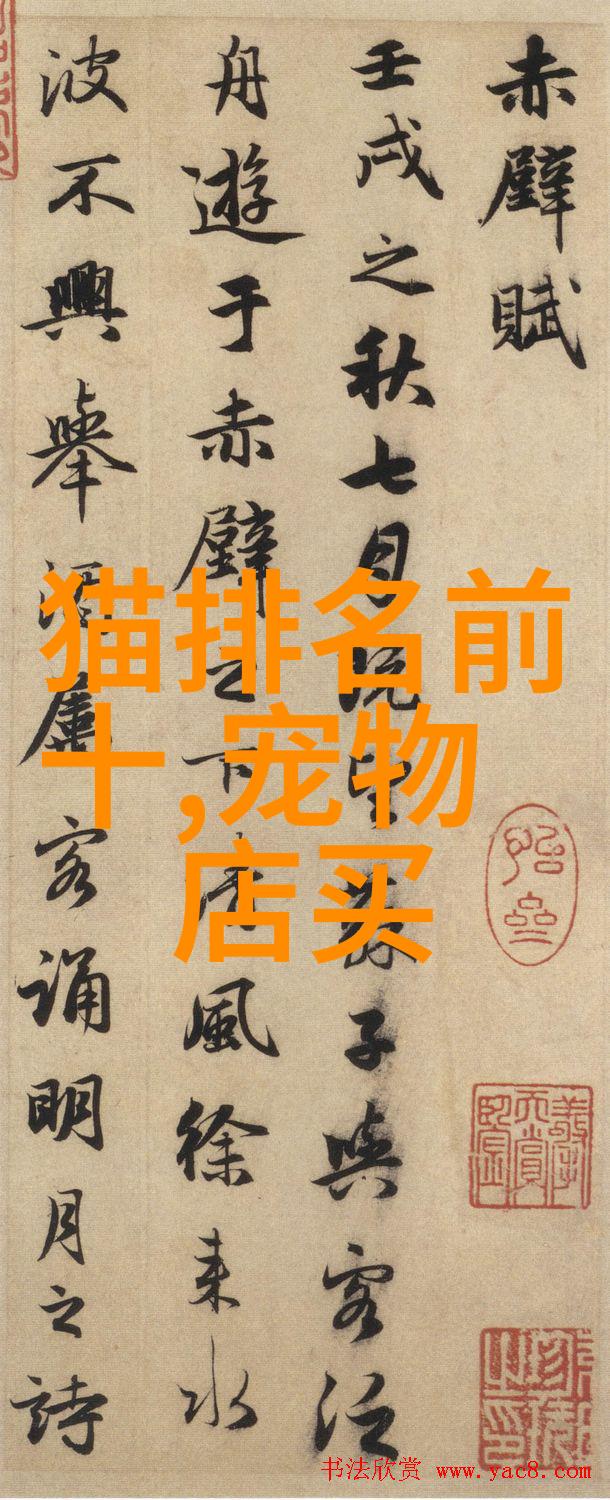 赤壁賦
壬戌之秋七月既望蘇子與客泛
舟遊于赤壁之下清風徐来水
波不興舉酒屬客誦明月之詩
猫排名前
十,宠物
店买
书法欣赏 www.yac8.com